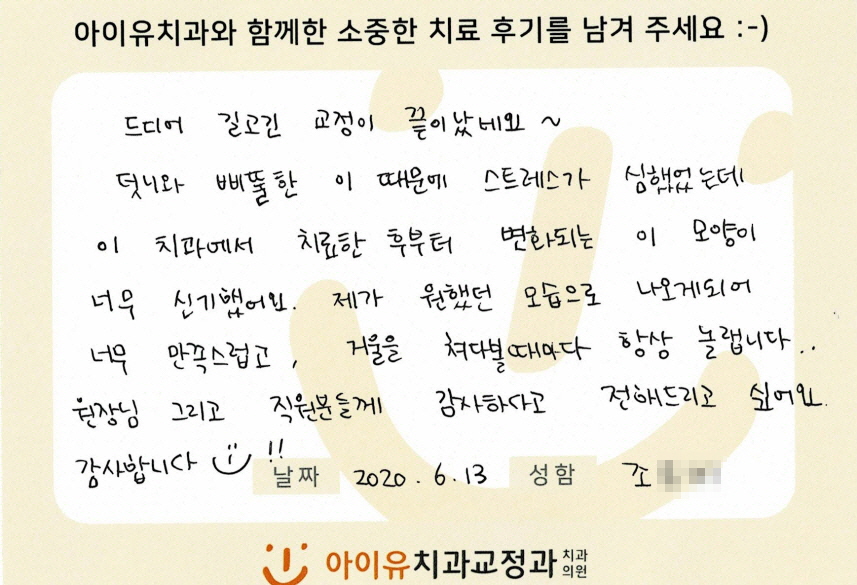 아이유치과와 함께한 소중한 치료 후기를 남겨 주세요 :-)
드디어 길고긴 교정이 끝이났네요 ~
덧니와 삐뚤한 이 때문에 스트레스가 심했었는데
이 치과에서 치료한 후부터 변화되는 이 모양이
너무 신기했어요. 제가 원했던 모습으로 나오게되어
너무 만족스럽고, 거울을 쳐다볼때마다 항상 놀랍니다..
원장님 그리고 직원분들께 감사하다고 전해드리고 싶어요.
감사합니다 !!
날짜 2020. 6.13 성함 조
아이유치과교정과 치과의원